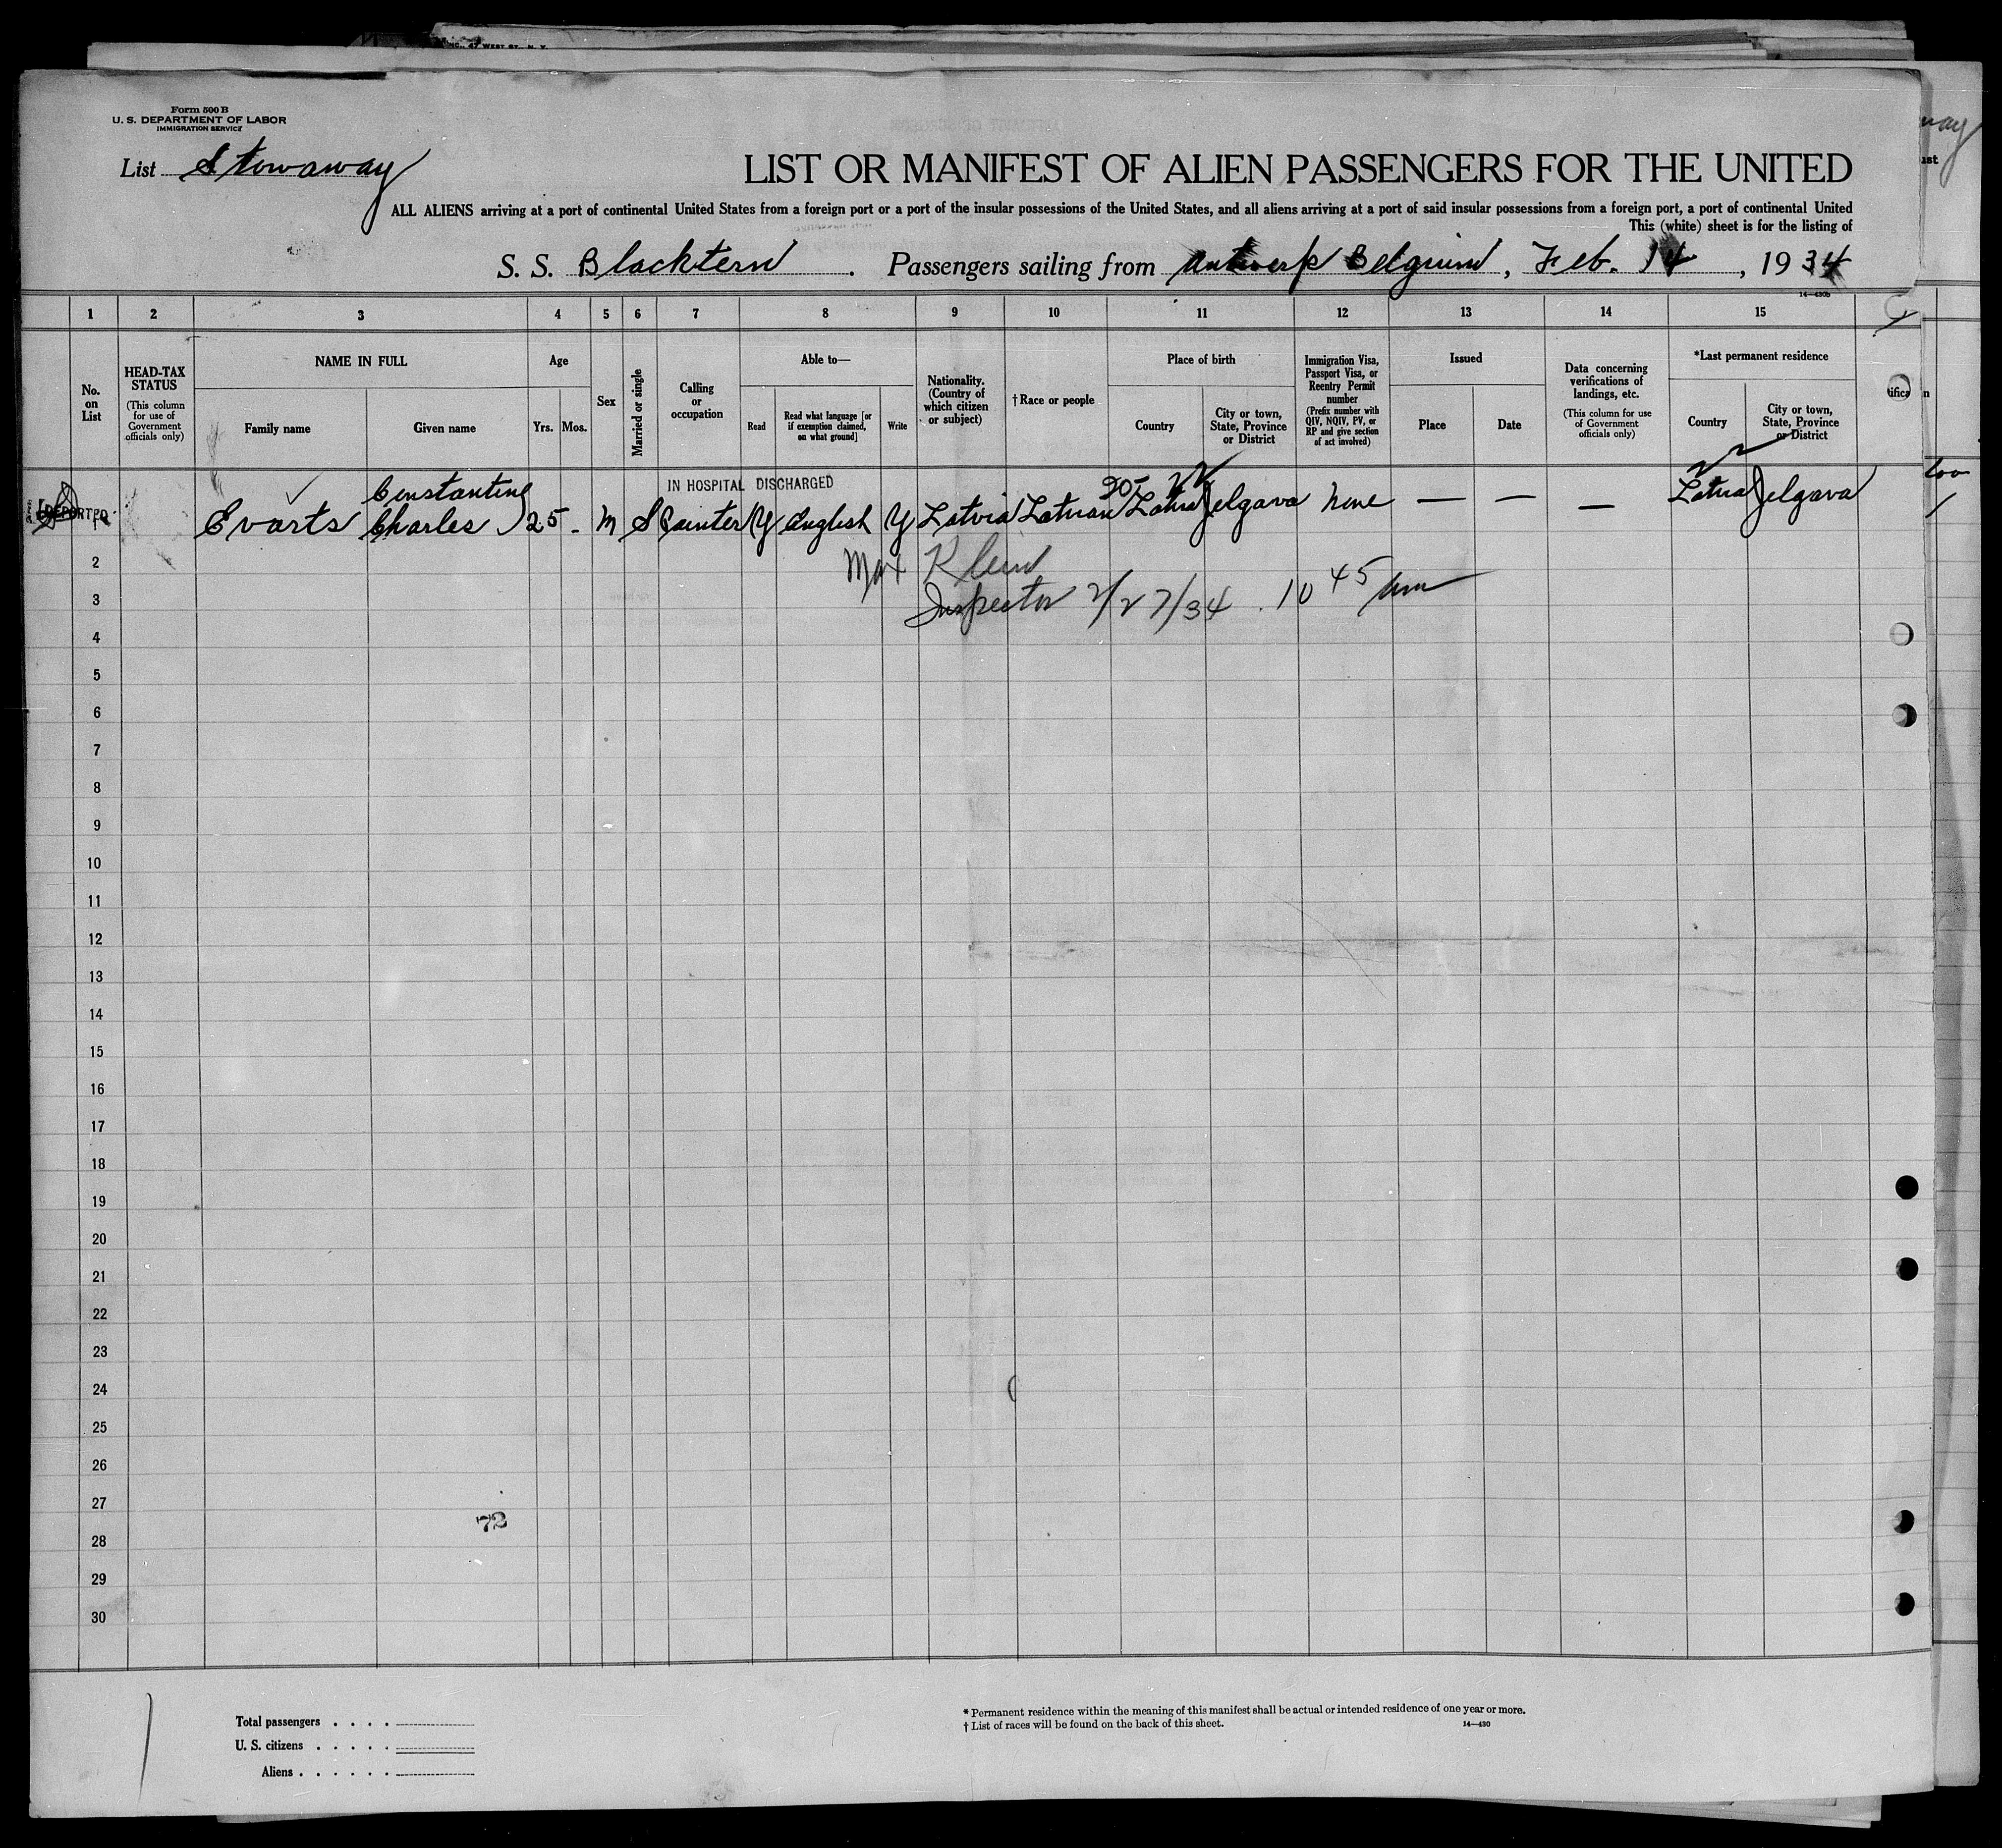 INC., 47 WEST ST., N. Y.
Form 500 B
U. S. DEPARTMENT OF LABOR
IMMIGRATION SERVICE
List Stowaway
LIST OR MANIFEST OF ALIEN PASSENGERS FOR THE UNITED
ALL ALIENS arriving at a port of continental United States from a foreign port or a port of the insular possessions of the United States, and all aliens arriving at a port of said insular possessions from a foreign port, a port of continental United
This (white) sheet is for the listing of
S. S. Blacktern . Passengers sailing from Antwerp Belgium, Feb. 14, 1934
14—430b
1 2 3 4 5 6 7 8 9 10 11 12 13 14 15
No. on List
HEAD-TAX STATUS
(This column for use of Government officials only)
NAME IN FULL
Family name Given name
Age
Yrs. Mos.
Sex
Married or single
Calling or occupation
Able to—
Read
Read what language [or if exemption claimed, on what ground]
Write
Nationality. (Country of which citizen or subject)
† Race or people
Place of birth
Country
City or town, State, Province or District
Immigration Visa, Passport Visa, or Reentry Permit number
(Prefix number with QIV, NQIV, PV, or RP and give section of act involved)
Issued
Place Date
Data concerning verifications of landings, etc.
(This column for use of Government officials only)
*Last permanent residence
Country
City or town, State, Province or District
IN HOSPITAL DISCHARGED
Constantine
1 Evarts Charles 25 - M S Painter Y English Y Latvia Latvian Latvia Jelgava None — — — Latvia Jelgava
2 Max Klein
3 Inspector 2/27/34 . 10 45 am
4
5
6
7
8
9
10
11
12
13
14
15
16
17
18
19
20
21
22
23
24
25
26
27
72
28
29
30
Total passengers . . . .
U. S. citizens . . . . .
Aliens . . . . . .
* Permanent residence within the meaning of this manifest shall be actual or intended residence of one year or more.
† List of races will be found on the back of this sheet.
14—430